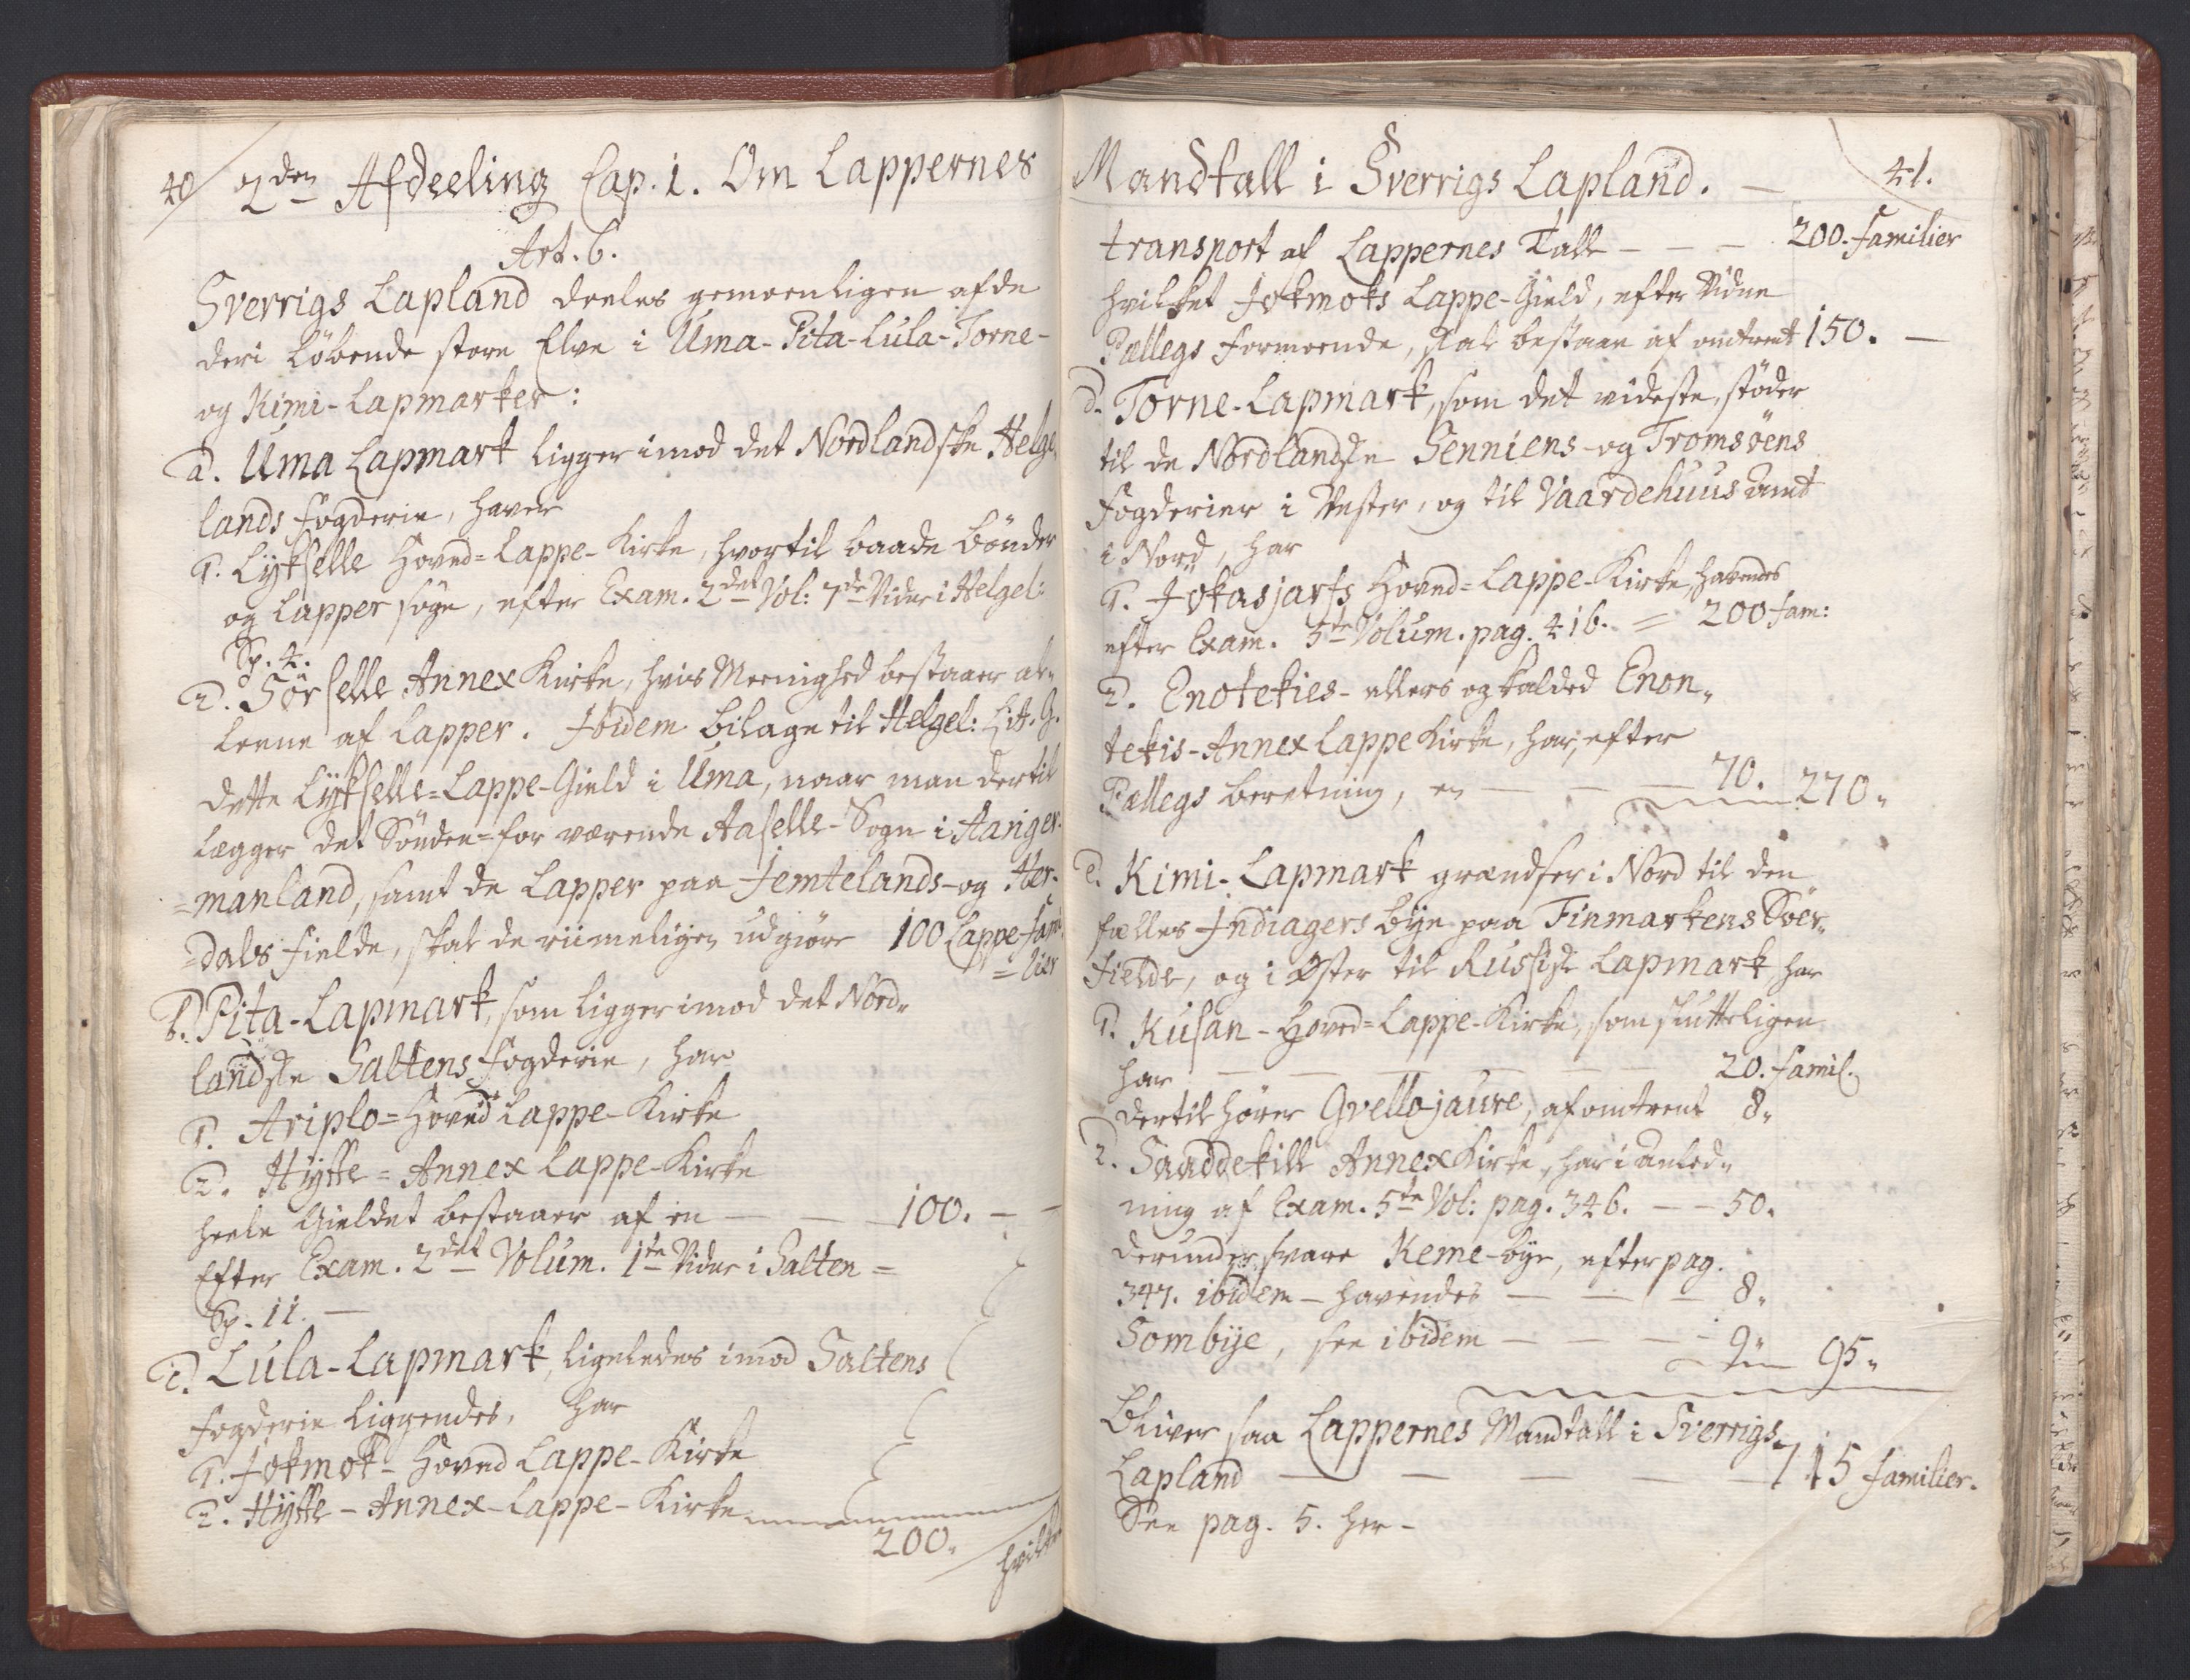 40
2den Afdeeling Cap. 1. Om Lappernes
Art. 6.
Sverrigs Lapland deeles gemeenligen af de
deri løbende store Elve i Uma-Pita-Lula-Torne-
og Kimi-Lapmarker:
a. Uma Lapmark ligger imod det Nordlandske Helge
lands fogderie, haver
1. Lÿkselle Hoved=Lappe-Kirke, hvortil baade bønder
og Lapper søge, efter Exam. 2det Vol: 7de Vidne i Helgel:
Sp. 4.
2. Sørselle Annex Kirke, hvis Meenighed bestaaer al-
leene af Lapper. Ibidem bilage til Helgel: Litt. G.
dette Lÿkselle=Lappe-Gield i Uma, naar man dertil
lægger det Sønden=for værende Aaselle-Sogn i Aanger-
=manland, samt de Lapper paa Jemtelands-og Her-
=dals fielde, skal de riimeligen udgiøre 100 Lappe-fami
=lier
b. Pita-Lapmark, som ligger imod det Nord-
landske Saltens fogderie, har
1. Ariplo=Hoved Lappe-Kirke
2. Hÿtte=Annex Lappe-Kirke
heele Gieldet bestaaer af en — — 100. — —
Efter Exam. 2det Volum. 1te Vidne i Salten=
Sp. 11. —
c. Lula-Lapmark, ligeledes imod Saltens
fogderie liggendes, har
1. Jokmok-Hoved Lappe-Kirke
2. Hÿtte-Annex-Lappe-Kirke
200.
hvilket
Mandtall i Sverrigs Lapland. —
41.
transport af Lappernes Tall — — — 200. familier
hvilket Jokmoks Lappe-Gield, efter Vidne
Pallegs formeende, skal bestaae af omtrent 150. —
d. Torne-Lapmark, som det videste, støder
til de Nordlandske Senniens-og Tromsøens
fogderier i Vester, og til Vaardehuus amt
i Nord, har
1. Jökasjarfs Hoved=Lappe-Kirke, havendes
efter Exam. 5te Volum. pag. 416. = 200 fam:
2. Enotekies-ellers og kalded Enon-
tekis-Annex Lappe Kirke, har, efter
Pallegs beretning, en — — — 70. 270.
e. Kimi-Lapmark grændser i Nord til den
fælles Indiagers bÿe paa Finmarkens Søer-
fielde, og i Øster til Russisk Lapmark har
1. Kusan-Hoved=Lappe-Kirke, som skutteligen
har — — — — — 20. famil.
dertil hører Gvellojaure, af omtrent 8.
2. Saaddekill Annex Kirke, har i anled-
ning af Exam. 5te Vol: pag. 346. — — 50.
derunder svare Keme-bÿe, efter pag.
347. ibidem — havendes — — — 8.
Sombÿe, see ibidem — — — 9. 95.
Bliver saa Lappernes Mandtall i Sverrigs
Lapland — — — — 715 familier.
See pag. 5. her-